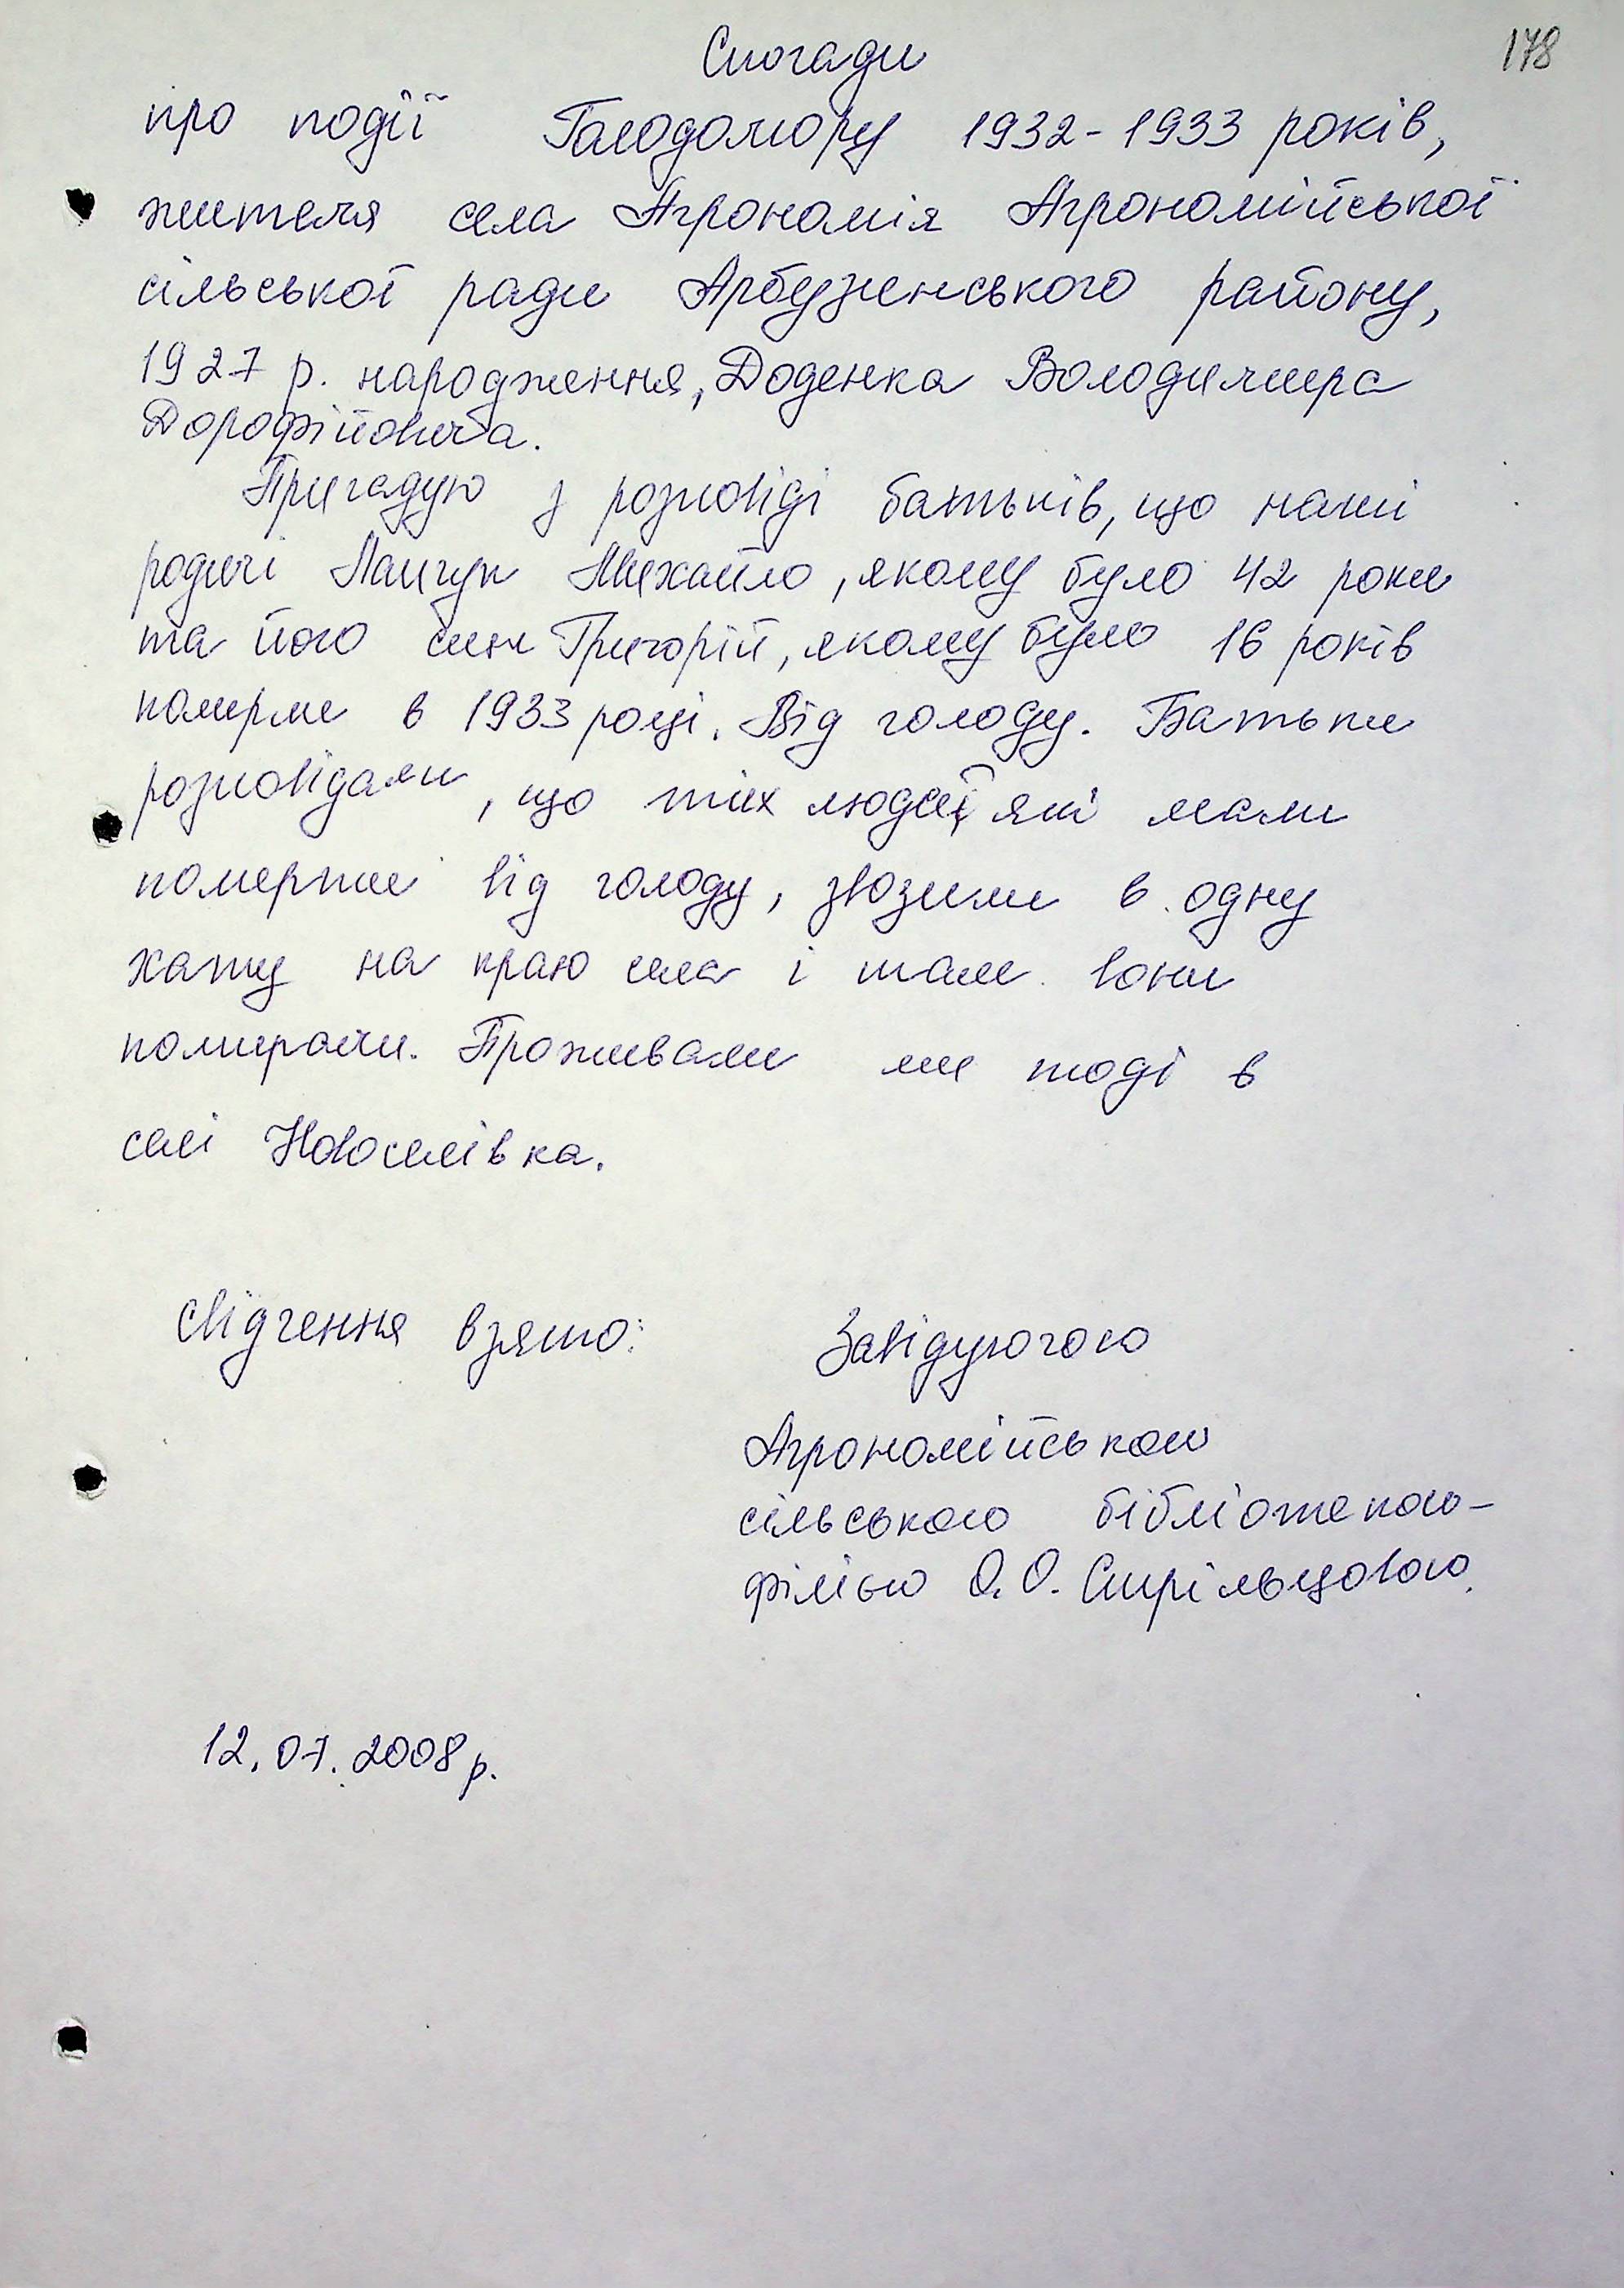 178
Спогади
про події Голодомору 1932-1933 років,
жителя села Агрономія Агрономійської
сільської ради Арбузинського району,
1927 р. народження, Доденка Володимира
Дорофійовича.
Пригадую з розповіді батьків, що наші
родичі Пащук Михайло, якому було 42 роки
та його син Григорій, якому було 16 років
померли в 1933 році. Від голоду. Батьки
розповідали, що тих людей, які мали
померти від голоду, звозили в одну
хату на краю села і там вони
помирали. Проживали ми тоді в
селі Новоселівка.
Свідчення взято: Завідуючою
Агрономійською
сільською бібліотекою-
філією О.О. Стрільцовою.
12.07.2008 р.